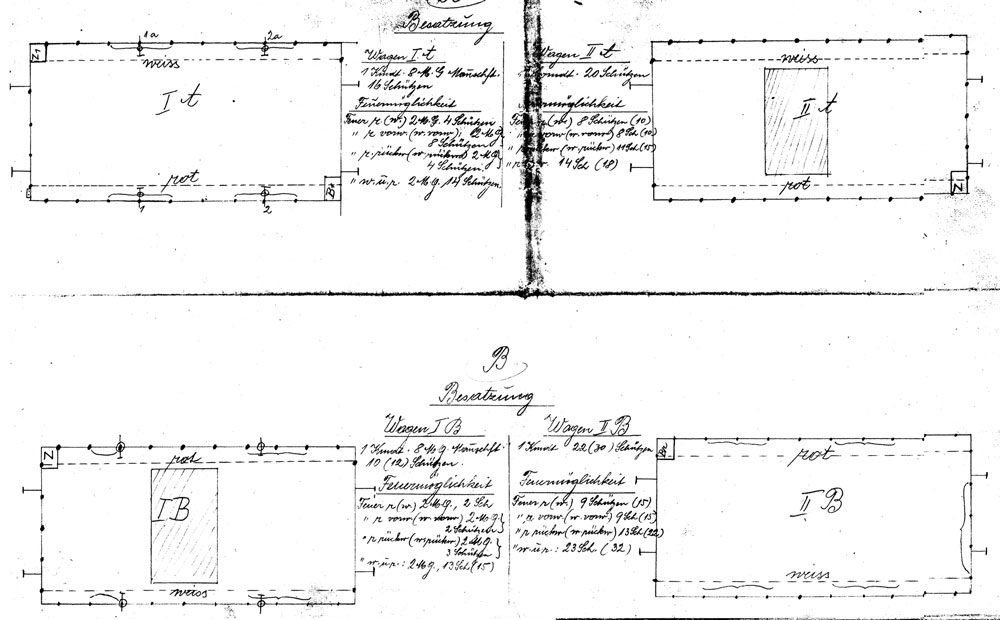 Besatzung
Wagen I A
1 Kmdt. 8 M.G. Mannschft.
16 Schützen
Feuermöglichkeit
Feuer r (w.) 2 M.G. 4 Schützen
" r vorw. (w. vorw.), 2 M.G.
8 Schützen
" r. rückw. (w. rückw.) 2 M.G.
4 Schützen.
" w. u. r. 2 M.G. 14 Schützen.
Wagen II A
20 Schützen
Feuer r (w.) 8 Schützen (10)
" r vorw. (w. vorw.) 8 Sch. (10)
(w. rückw.) 11 Sch. (15)
14 Sch (18)
Z1
1a
2a
weiss
I A
rot
Br
1
2
weiss
II A
rot
Z
B
Besatzung
Wagen I B
1 Kmdt 8 M.G. Mannschft.
10 (12) Schützen.
Feuermöglichkeit
Feuer r (w.) 2 M.G., 2 Sch
" r vorw (w vorw) 2 M.G.
2 Schützen
" r rückw (w. rückw) 2 M.G.
3 Schützen
" w. u. r.: 2 M.G., 13 Sch. (15)
Wagen II B
1 Kmdt 22 (30) Schützen
Feuermöglichkeit
Feuer r (w.) 9 Schützen (15)
" r vorw (w. vorw) 9 Sch. (15)
" r rückw (w rückw) 13 Sch (22)
" w. u. r.: 23 Sch. (32)
Z
rot
I B
weiss
Br
rot
II B
weiss